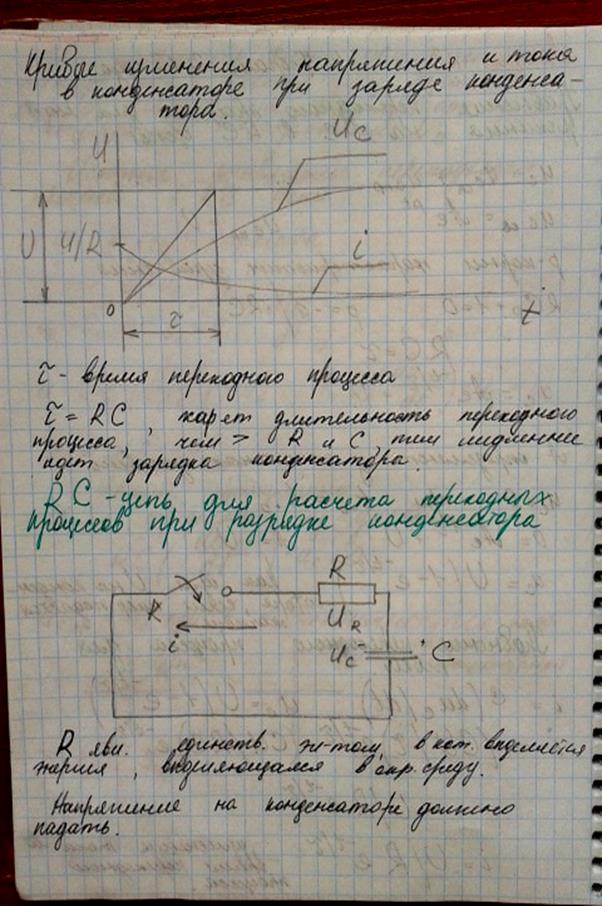 Кривые изменения напряжения и тока
в конденсаторе при заряде конденса-
тора.
U
Uc
U
U/R
i
0
t
τ
τ - время переходного процесса
τ = RC, характ длительность переходного
процесса, чем > R и C, тем медленнее
идет зарядка конденсаторы.
RC-цепь для расчета переходных
процессов при разрядке конденсатора
R
K
UR
i
Uc
C
R явл. единств. эл-том, в кот. выделяется
энергия, выделяющаяся в окр. среду.
Напряжение на конденсаторе должно
падать.